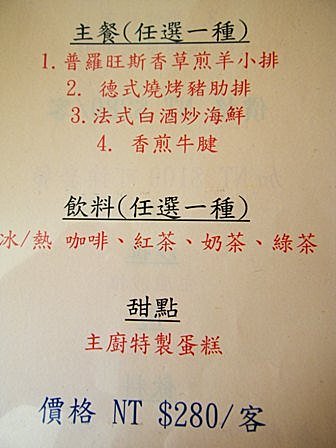 主餐(任選一種)
1.普羅旺斯香草煎羊小排
2. 德式燒烤豬肋排
3.法式白酒炒海鮮
4. 香煎牛腱
飲料(任選一種)
冰/熱 咖啡、紅茶、奶茶、綠茶
甜點
主廚特製蛋糕
價格 NT $280/客